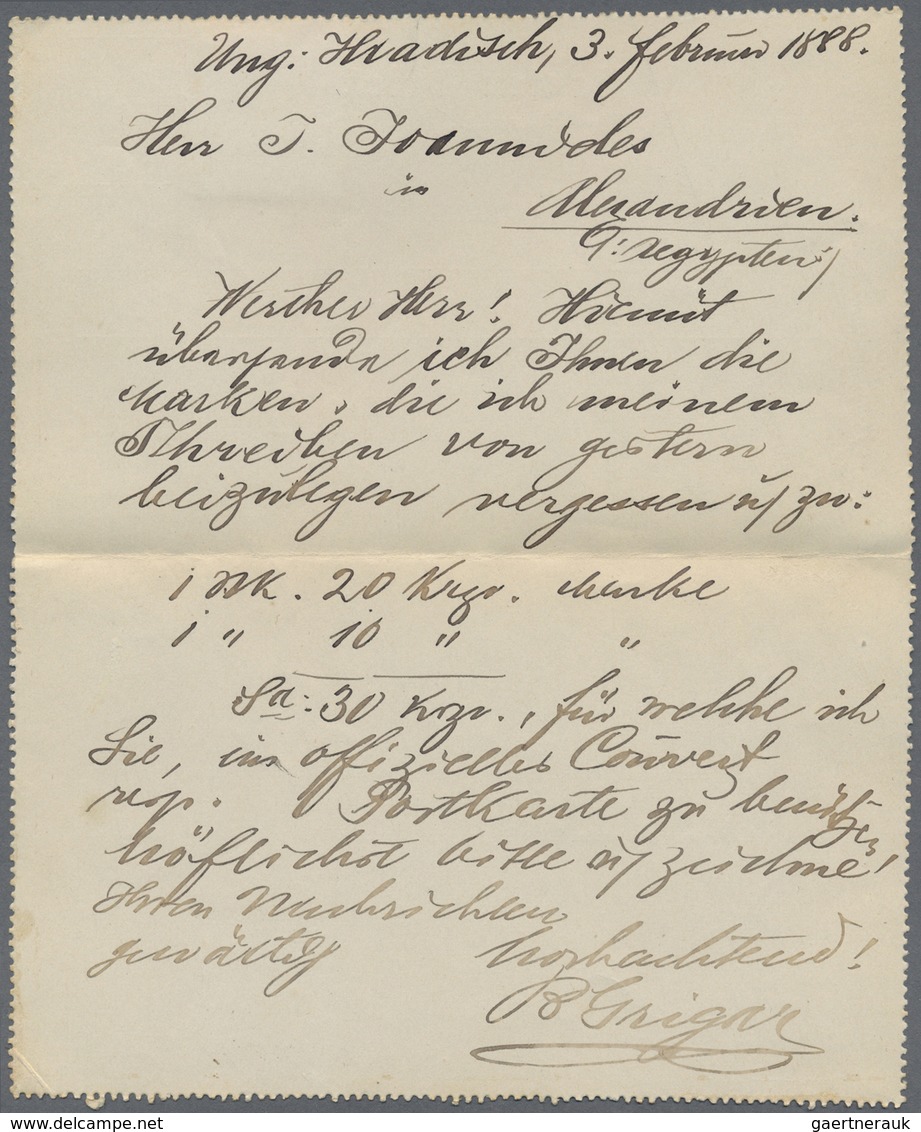 Ung: Hradisch, 3. Februar 1888.
Herr T. Joannides
in
Alexandrien.
(: Aegypten :)
Werther Herr! Hiemit
übersende ich Ihnen die
Marken, die ich meinem
Schreiben von gestern
beizulegen vergessen u/ zw:
1 Stk. 20 Krzr. Marke
1 " 10 " "
Sa: 30 Krzr., für welche ich
Sie, ein offizielles Couvert
resp. Postkarte zu benützen
höflichst bitte u/ zeichne!
Ihren Nachrichten
gewärtig Hochachtend!
B Grigar
gaertnerauk